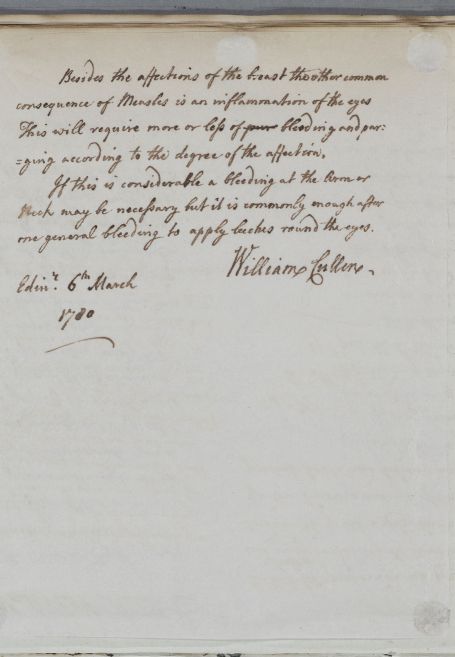 Besides the affections of the breast the other common
consequence of Measles is an inflammation of the eyes
This will require more or less of pur bleeding and pur:
=ging according to the degree of the affection.
If this is considerable a bleeding at the Arm or
Neck may be necessary but it is commonly enough after
one general bleeding to apply leeches round the eyes.
William Cullen.
Edinr. 6th March
1780